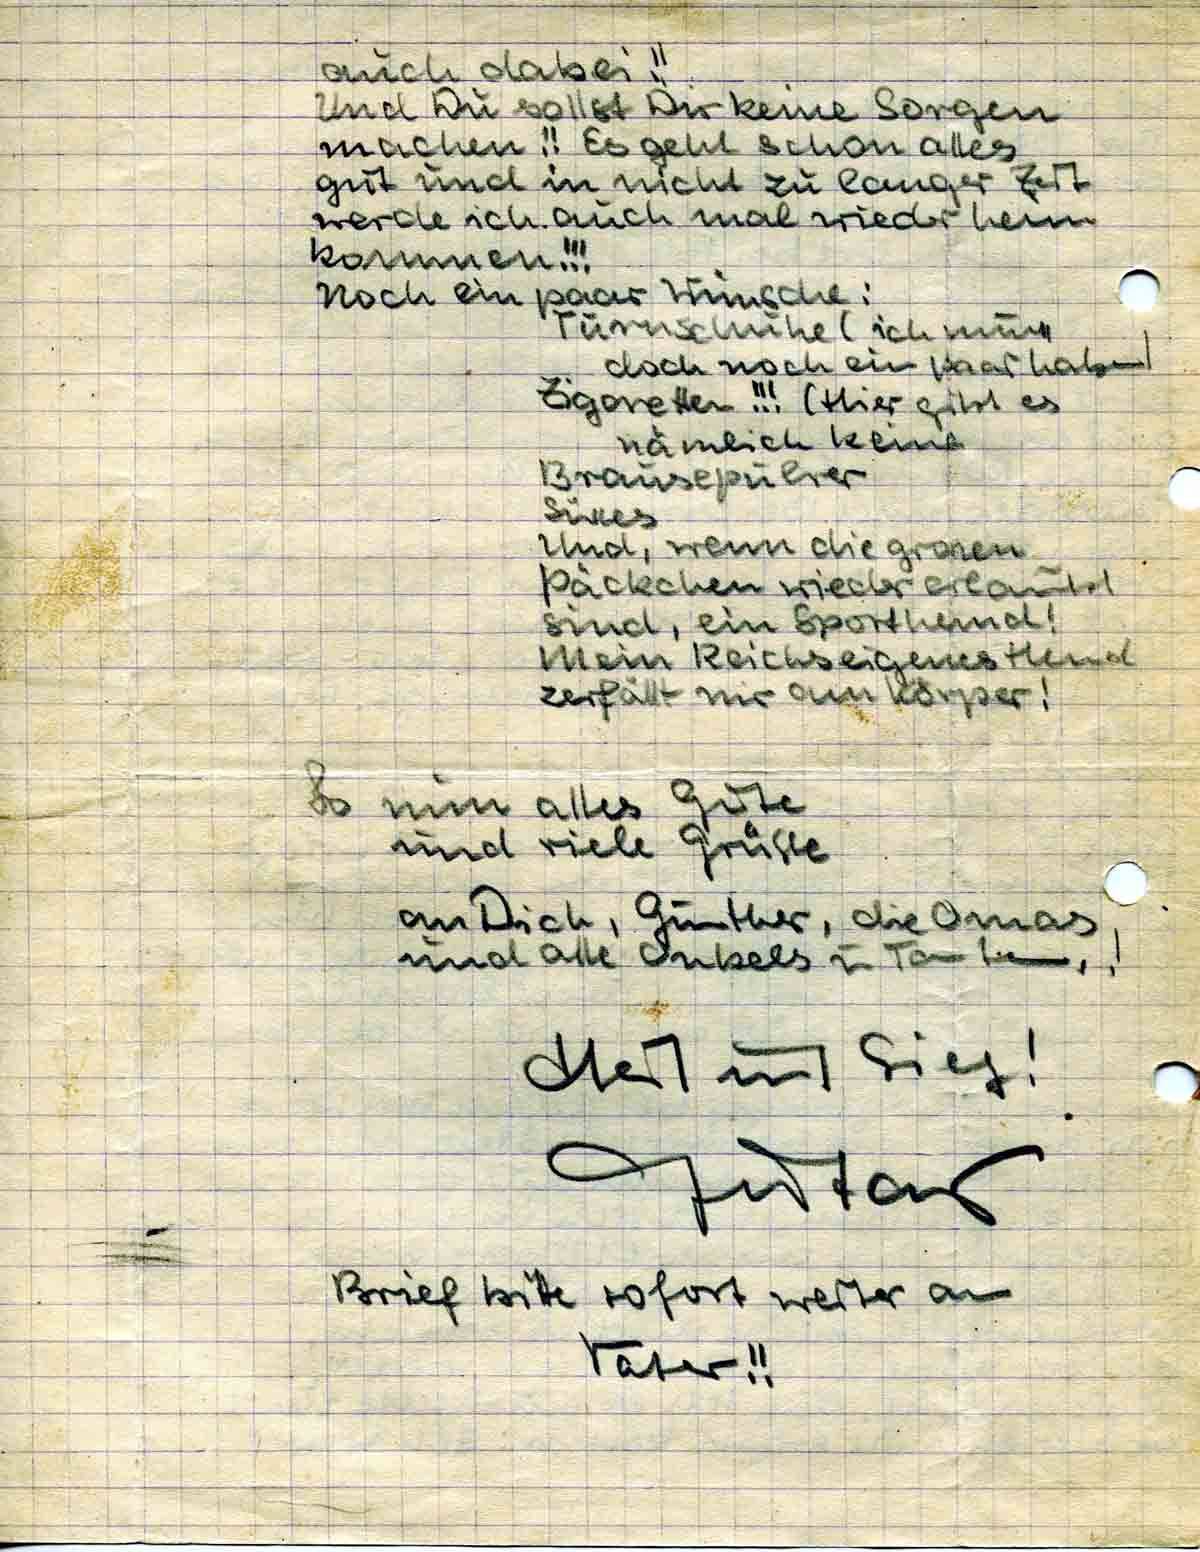 auch dabei!!
Und Du sollst Dir keine Sorgen
machen!! Es geht schon alles
gut und in nicht zu langer Zeit
werde ich auch mal wieder heim
kommen!!!
Noch ein paar Wünsche:
Turnschuhe (ich muss
doch noch ein paar haben)
Zigaretten!!! (Hier gibt es
nämlich keine
Brausepulver
Süsses
Und, wenn die grossen
Päckchen wieder erlaubt
sind, ein Sporthemd!
Mein Reichseigenes Hemd
zerfällt mir am Körper!
So nun alles Gute
und viele Grüße
an Dich, Günther, die Omas,
und alle Onkels u Tanten,!
Heil und Sieg!
Gustav
Brief bitte sofort weiter an
Vater!!